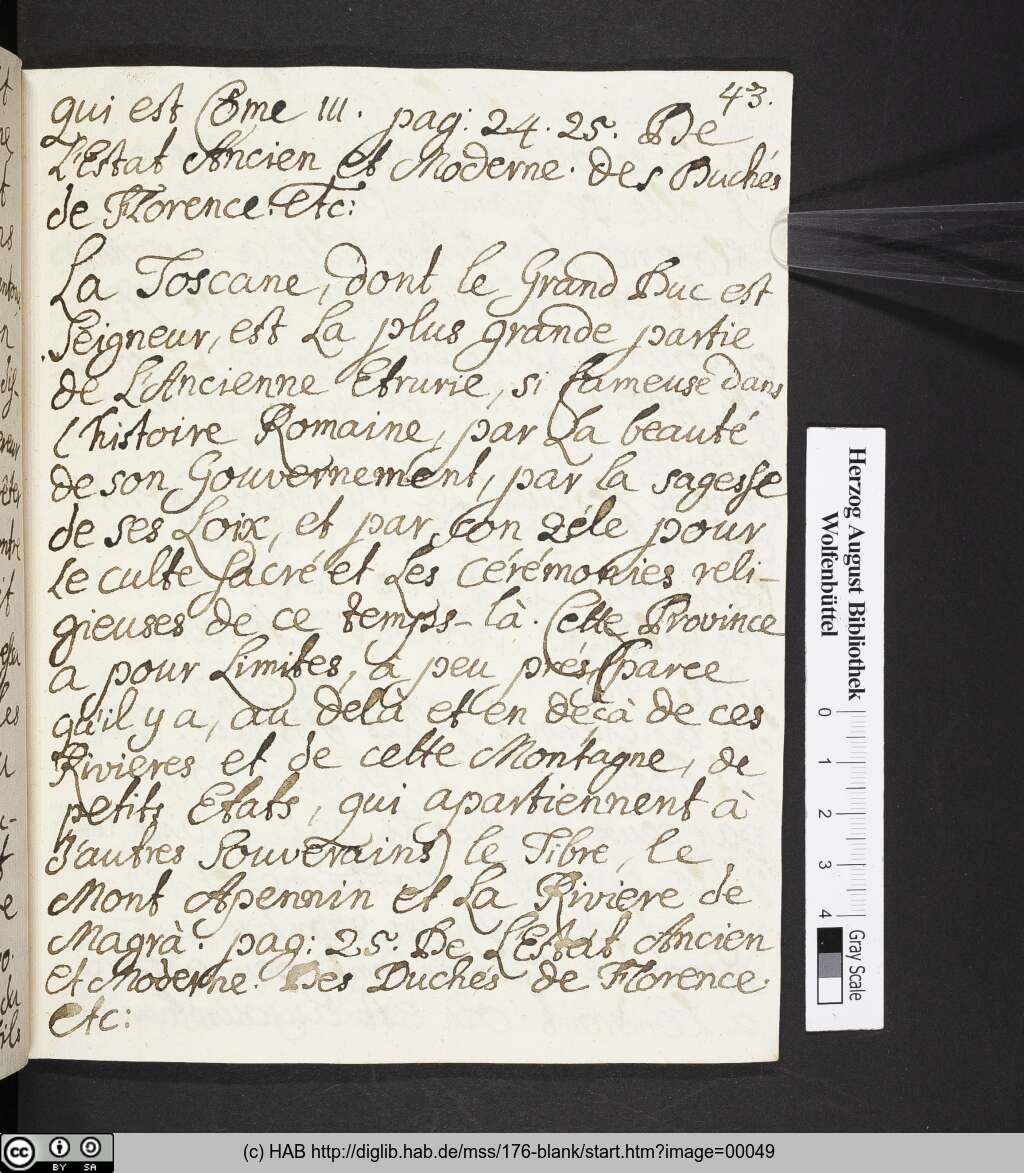 43.
qui est Côme III. pag: 24. 25. De
L'Estat Ancien et Moderne. des Duchés
de Florence. etc:
La Toscane, dont le Grand Duc est
Seigneur, est La plus grande partie
de L'Ancienne Etrurie, si fameuse dans
l'histoire Romaine, par La beauté
de son Gouvernement, par la sagesse
de ses Loix, et par son zéle pour
le culte sacré et Les cérémonies reli-
gieuses de ce temps-là. Cette Province
a pour Limites, a peu prés (parce
qu'il y a, au delà et en deçà de ces
Rivieres et de cette Montagne, de
petits Etats, qui apartiennent à
d'autres Souverains) le Tibre, le
Mont Apennin et La Riviere de
Magrà. pag: 25. De L'Estat Ancien
et Moderne. Des Duches de Florence.
etc:
Herzog August Bibliothek
Wolfenbüttel
0 1 2 3 4
Gray Scale
cc BY SA
(c) HAB http://diglib.hab.de/mss/176-blank/start.htm?image=00049